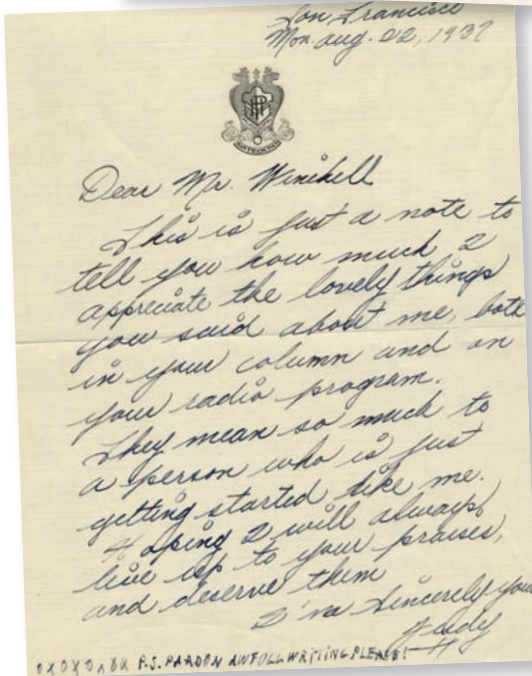 San Francisco
Mon. Aug. 22, 1937
SAN FRANCISCO
Dear Mr. Winchell
This is just a note to
tell you how much I
appreciate the lovely things
you said about me, both
in your column and on
your radio program.
They mean so much to
a person who is just
getting started like me.
Hoping I will always
live up to your praises,
and deserve them
I'm Sincerely your
Judy
OXOXOXOX P.S. PARDON AWFULL WRITING PLEASE!